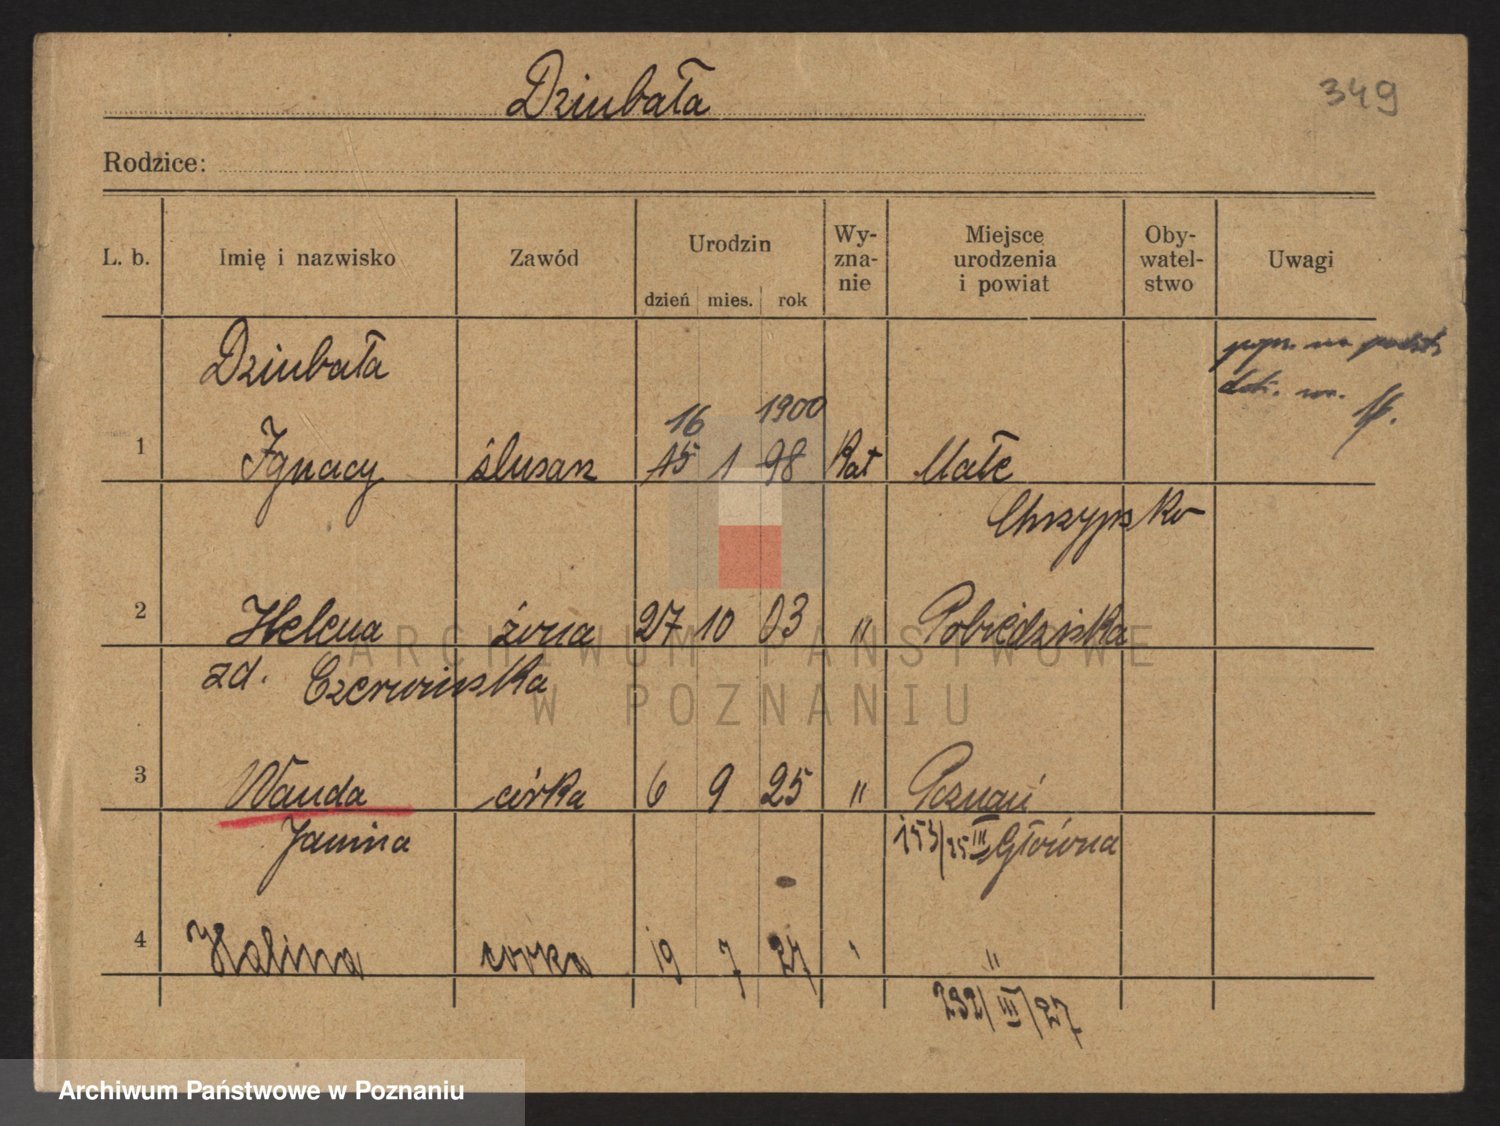 Dziubała
349
Rodzice:
L. b. Imię i nazwisko Zawód Urodzin dzień mies. rok Wy-zna-nie Miejsce urodzenia i powiat Oby-watel-stwo Uwagi
Dziubała
popr. na podst.
16 1900
1 Ignacy ślusarz 15 1 98 Kat Małe
Chrzypsko
2 Helena żona 27 10 03 " Pobiedziska
zd. Czerwińska
3 Wanda córka 6 9 25 " Poznań
Janina 153/25 III Główna
4 Halina corka 19 7 27 " "
292/III/27
ARCHIWUM PAŃSTWOWE
W POZNANIU
Archiwum Państwowe w Poznaniu